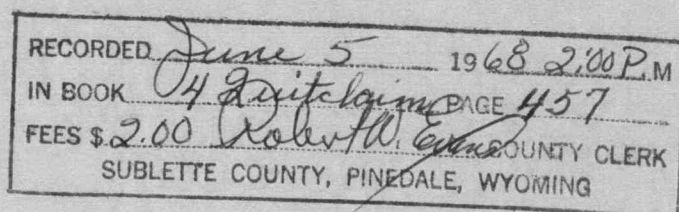 RECORDED June 5 1968 2:00 P.M
IN BOOK 4 Quitclaim PAGE 457
FEES $ 2.00 Robert W. Evans COUNTY CLERK
SUBLETTE COUNTY, PINEDALE, WYOMING